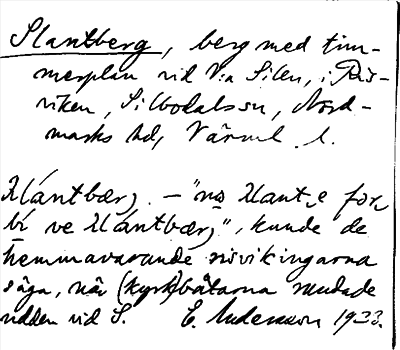 Slantberg, berg med tim-
merplan vid V:a Silen, i Ris-
viken, Silbodals sn, Nord-
marks hd, Värml. l.
slántbærj. – "nø slantɘ for
bi ve slántbærj", kunde de
hemmavarande risvikingarna
säga, när (kyrk)båtarna rundade
udden vid S. E. Andersson 1933.